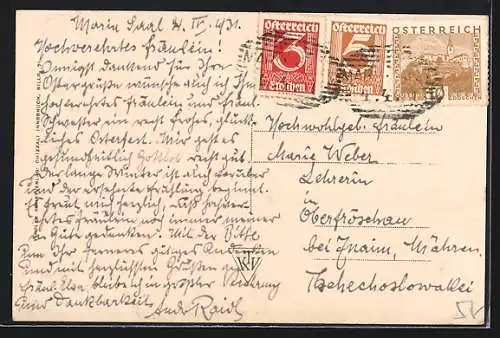 Maria Saal 4. IV. 931.
Hochverehrtes Fräulein!
Innigst dankend für Ihre
Ostergrüße wünsche auch ich Ihnen
hochverehrtes Fräulein und Fräul.
Schwester ein recht frohes, glück-
liches Osterfest. Mir geht es
gesundheitlich Gottlob recht gut.
Der lange Winter ist auch vorüber
und der ersehnte Frühling beginnt.
Es freut mich herzlich, daß hochver-
ehrtes Fräulein noch immer meiner
in Güte gedenken. Mit der Bitte
um Ihr ferneres gütiges Andenken
und mit herzlichsten Grüßen
Fräul. bleibe ich in größter Verehrung
und Dankbarkeit
Andr. Raidl
Österreich
3
Groschen
Österreich
Groschen
ÖSTERREICH
Hochwohlgeb. Fräulein
Marie Weber
Lehrerin
in
Oberfröschau
bei Znaim, Mähren.
Tschechoslowakei